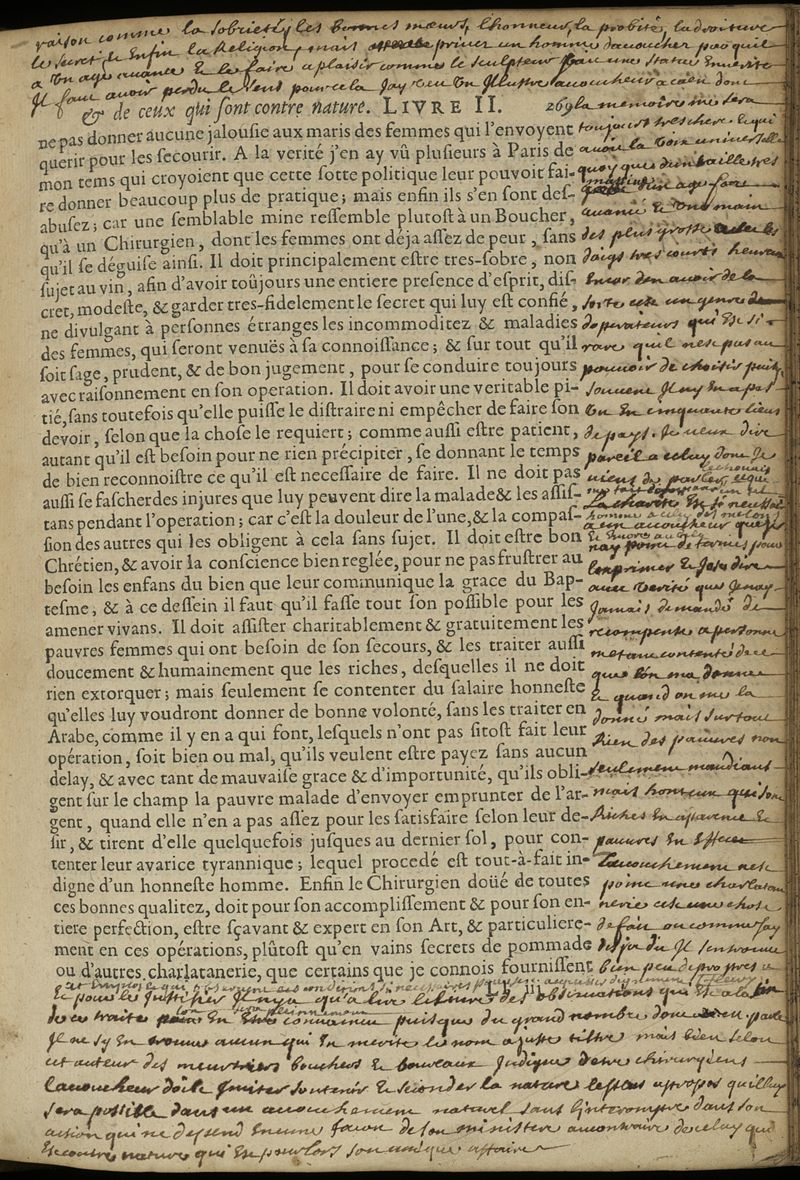 raison comme la sobrieté, les bonnes mœurs, lhonneur, la probité, la droiture
le secret & Enfin la Religion, mais priver un homme daccoucher parcequil
a un age avancé & le faire a plaisir comme le sculpteur une statue En verité
Il faut avoir perdu le sens pour cela Jay veu un Illustre accoucheur a caen dont
& de ceux qui ſont contre nature. LIVRE II. 269
la memoire me sera
toujours tres chere, le qui
avoit la voix universelle
quoy que dune taille tres
un age fore
avancé & une main
des plus grosse & les
doigts tres courts heureux
Encor den avoir de la
sorte cest un genre
doperateurs qui Est si
rare quil nest pas au
pouvoir de choisir puis
souvent Il ny En a pas
un En cinquante lieux
de pays. Je veux dire
pareil a celuy dont Je
viens de parler
a un accoucheur que je
nay point de termes pour
lexprimer & Jose dire
avec verité que Je nay
Jamais demandé de
recompense a personne
metant contenté de ce
que lon ma donné
& quand on me la
donné mais sur tout
Rien des pauvres non
seulement mandians
mais honteux qui sont
Riches En aparence &
pauvres En Effect
Laccouchement nest
point une charlatan
nerie cest une chose
de fait ou comme Jay
desja dit Il sen trouve
bien peu de propres a
ne pas donner aucune jalouſie aux maris des femmes qui l'envoyent
querir pour les ſecourir. A la verité j'en ay vû pluſieurs à Paris de
mon tems qui croyoient que cette ſotte politique leur pouvoit fai-
re donner beaucoup plus de pratique; mais enfin ils s'en ſont deſ-
abuſez; car une ſemblable mine reſſemble plutoſt à un Boucher,
qu'à un Chirurgien, dont les femmes ont déja aſſez de peur, ſans
qu'il ſe déguiſe ainſi. Il doit principalement eſtre tres-ſobre, non
ſujet au vin, afin d'avoir toûjours une entiere preſence d'eſprit, diſ-
cret, modeſte, & garder tres-fidelement le ſecret qui luy eſt confié,
ne divulgant à perſonnes étranges les incommoditez & maladies
des femmes, qui ſeront venuës à ſa connoiſſance; & ſur tout qu'il
ſoit ſage, prudent, & de bon jugement, pour ſe conduire toujours
avec raiſonnement en ſon operation. Il doit avoir une veritable pi-
tié, ſans toutefois qu'elle puiſſe le diſtraire ni empêcher de faire ſon
devoir, ſelon que la choſe le requiert; comme auſſi eſtre patient,
autant qu'il eſt beſoin pour ne rien précipiter, ſe donnant le temps
de bien reconnoiſtre ce qu'il eſt neceſſaire de faire. Il ne doit pas
auſſi ſe faſcher des injures que luy peuvent dire la malade & les aſſiſ-
tans pendant l'operation; car c'eſt la douleur de l'une, & la compaſ-
ſion des autres qui les obligent à cela ſans ſujet. Il doit eſtre bon
Chrétien, & avoir la conſcience bien reglée, pour ne pas fruſtrer au
beſoin les enfans du bien que leur communique la grace du Bap-
teſme, & à ce deſſein il faut qu'il faſſe tout ſon poſſible pour les
amener vivans. Il doit aſſiſter charitablement & gratuitement les
pauvres femmes qui ont beſoin de ſon ſecours, & les traiter auſſi
doucement & humainement que les riches, deſquelles il ne doit
rien extorquer; mais ſeulement ſe contenter du ſalaire honneſte
qu'elles luy voudront donner de bonne volonté, ſans les traiter en
Arabe, comme il y en a qui font, leſquels n'ont pas ſitoſt fait leur
opération, ſoit bien ou mal, qu'ils veulent eſtre payez ſans aucun
delay, & avec tant de mauvaiſe grace & d'importunité, qu'ils obli-
gent ſur le champ la pauvre malade d'envoyer emprunter de l'ar-
gent, quand elle n'en a pas aſſez pour les ſatisfaire ſelon leur de-
ſir, & tirent d'elle quelquefois juſques au dernier ſol, pour con-
tenter leur avarice tyrannique; lequel procedé eſt tout-à-fait in-
digne d'un honneſte homme. Enfin le Chirurgien doüé de toutes
ces bonnes qualitez, doit pour ſon accompliſſement & pour ſon en-
tiere perfection, eſtre ſçavant & expert en ſon Art, & particuliere-
ment en ces opérations, plûtoſt qu'en vains ſecrets de pommade
ou d'autres charlatanerie, que certains que je connois fourniſſent
& pour le Justifier Il ny a qu'a lire le livre des observations qui Est a la fin
de ce traité En Estre convaincu puisque du grand nombre dont parle
Il ne sy En trouve aucun qui En merite le nom a juste tiltre mais bien selon
cet auteur des meurtriers bouchers & boureaux Indigne detre chirurgiens
Laccoucheur doit Imiter soutenir & seconder la nature quil luy
sera possible dans un accouchement naturel sans linterrompre dans son
action qui ne depend Encune facon de son ministere au contraire de celuy qui
Est contre nature qui Est pour lors son unique affaire